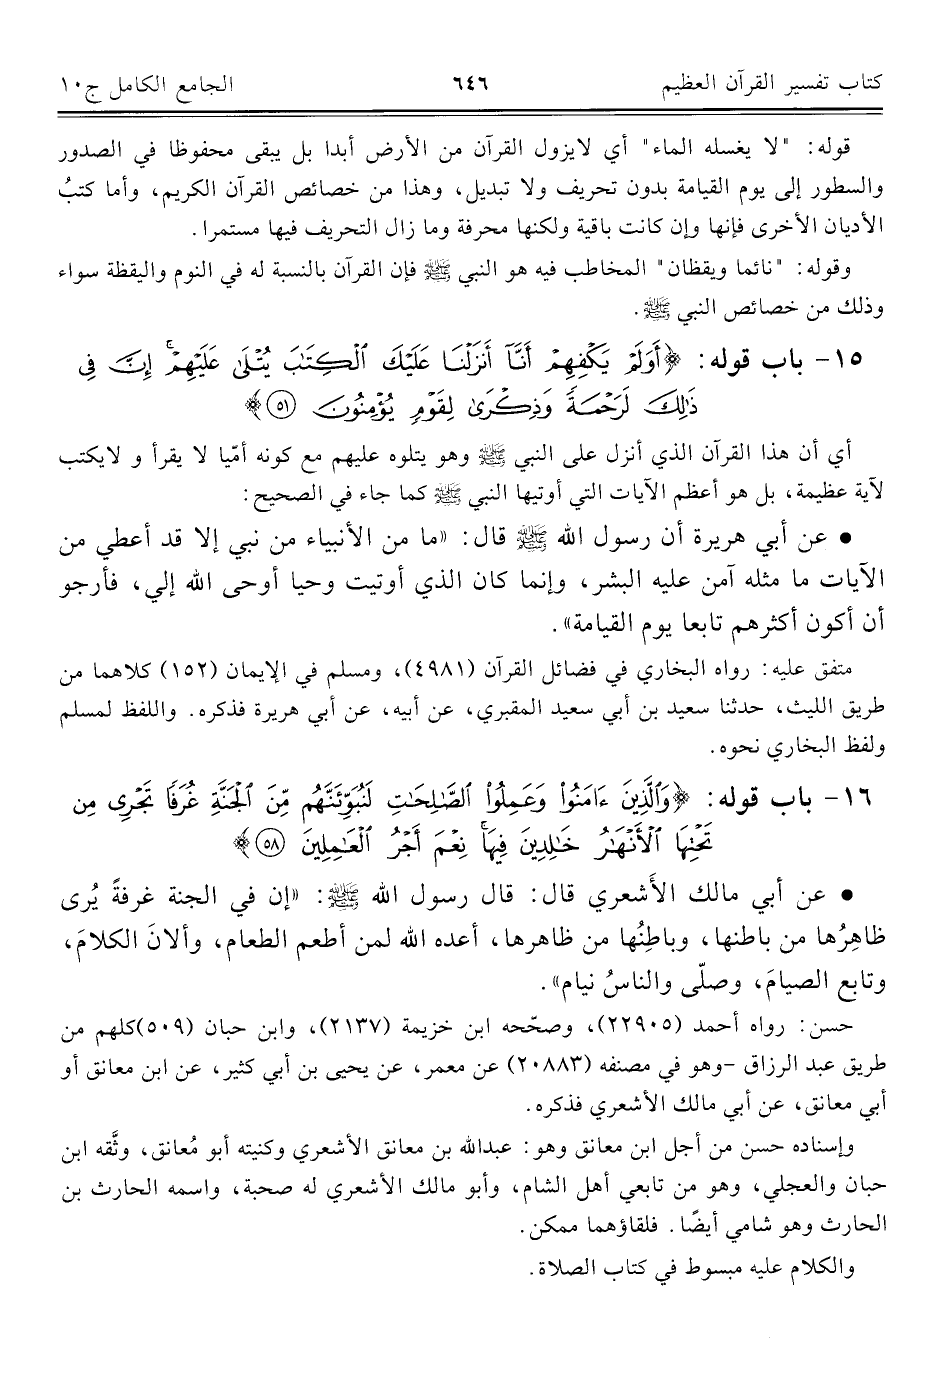 كتاب تفسير القرآن العظيم ٦٤٦ الجامع الكامل ج١٠
قوله: "لا يغسله الماء" أي لايزول القرآن من الأرض أبدا بل يبقى محفوظا في الصدور
والسطور إلى يوم القيامة بدون تحريف ولا تبديل، وهذا من خصائص القرآن الكريم، وأما كتبُ
الأديان الأخرى فإنها وإن كانت باقية ولكنها محرفة وما زال التحريف فيها مستمرا.
وقوله: "نائما ويقظان" المخاطب فيه هو النبي ﷺ فإن القرآن بالنسبة له في النوم واليقظة سواء
وذلك من خصائص النبي ﷺ.
١٥- باب قوله: ﴿أَوَلَمْ يَكْفِهِمْ أَنَّآ أَنزَلْنَا عَلَيْكَ ٱلْكِتَٰبَ يُتْلَىٰ عَلَيْهِمْ ۚ إِنَّ فِى
ذَٰلِكَ لَرَحْمَةً وَذِكْرَىٰ لِقَوْمٍ يُؤْمِنُونَ ۝٥١﴾
أي أن هذا القرآن الذي أنزل على النبي ﷺ وهو يتلوه عليهم مع كونه أمّيا لا يقرأ و لايكتب
لآية عظيمة، بل هو أعظم الآيات التي أوتيها النبي ﷺ كما جاء في الصحيح:
• عن أبي هريرة أن رسول الله ﷺ قال: «ما من الأنبياء من نبي إلا قد أعطي من
الآيات ما مثله آمن عليه البشر، وإنما كان الذي أوتيت وحيا أوحى الله إلي، فأرجو
أن أكون أكثرهم تابعا يوم القيامة».
متفق عليه: رواه البخاري في فضائل القرآن (٤٩٨١)، ومسلم في الإيمان (١٥٢) كلاهما من
طريق الليث، حدثنا سعيد بن أبي سعيد المقبري، عن أبيه، عن أبي هريرة فذكره. واللفظ لمسلم
ولفظ البخاري نحوه.
١٦- باب قوله: ﴿وَٱلَّذِينَ ءَامَنُوا۟ وَعَمِلُوا۟ ٱلصَّٰلِحَٰتِ لَنُبَوِّئَنَّهُم مِّنَ ٱلْجَنَّةِ غُرَفًا تَجْرِى مِن
تَحْتِهَا ٱلْأَنْهَٰرُ خَٰلِدِينَ فِيهَا ۚ نِعْمَ أَجْرُ ٱلْعَٰمِلِينَ ۝٥٨﴾
• عن أبي مالك الأَشعري قال: قال رسول الله ﷺ: «إن في الجنة غرفةً يُرى
ظاهِرُها من باطنها، وباطِنُها من ظاهرها، أعده الله لمن أطعم الطعام، وألانَ الكلامَ،
وتابع الصيامَ، وصلّى والناسُ نيام».
حسن: رواه أحمد (٢٢٩٠٥)، وصحّحه ابن خزيمة (٢١٣٧)، وابن حبان (٥٠٩)كلهم من
طريق عبد الرزاق -وهو في مصنفه (٢٠٨٨٣) عن معمر، عن يحيى بن أبي كثير، عن ابن معانق أو
أبي معانق، عن أبي مالك الأشعري فذكره.
وإسناده حسن من أجل ابن معانق وهو: عبدالله بن معانق الأشعري وكنيته أبو مُعانق، وثَّقه ابن
حبان والعجلي، وهو من تابعي أهل الشام، وأبو مالك الأشعري له صحبة، واسمه الحارث بن
الحارث وهو شامي أيضًا. فلقاؤهما ممكن.
والكلام عليه مبسوط في كتاب الصلاة.